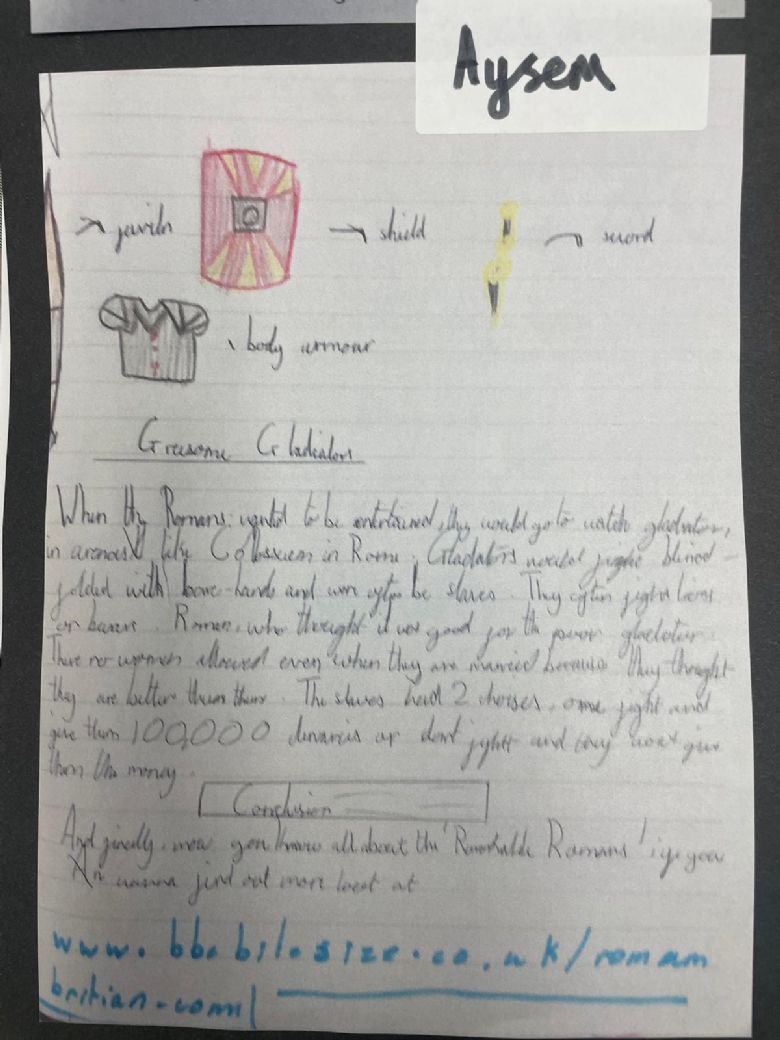 Aysem
javiln
shield
sword
body armour
Greusome Gladiators
When the Romans wanted to be entertained, they would go to watch gladiators,
in arenas like Colosseum in Rome. Gladiators would fight blind-
folded with bare-hands and were often be slaves. They often fight lions
or bears. Romans who thought it was good for the poor gladiator.
There no women allowed even when they are married because they thought
they are better than them. The slaves had 2 choises, one fight and
give them 100,000 denarius or dont fight and they wont give
them the money.
Conclusion
And finally, now you know all about the 'Remarkable Romans' if you
wanna find out more look at
www.bbc.bit.size.co.uk/romam
britian.com/